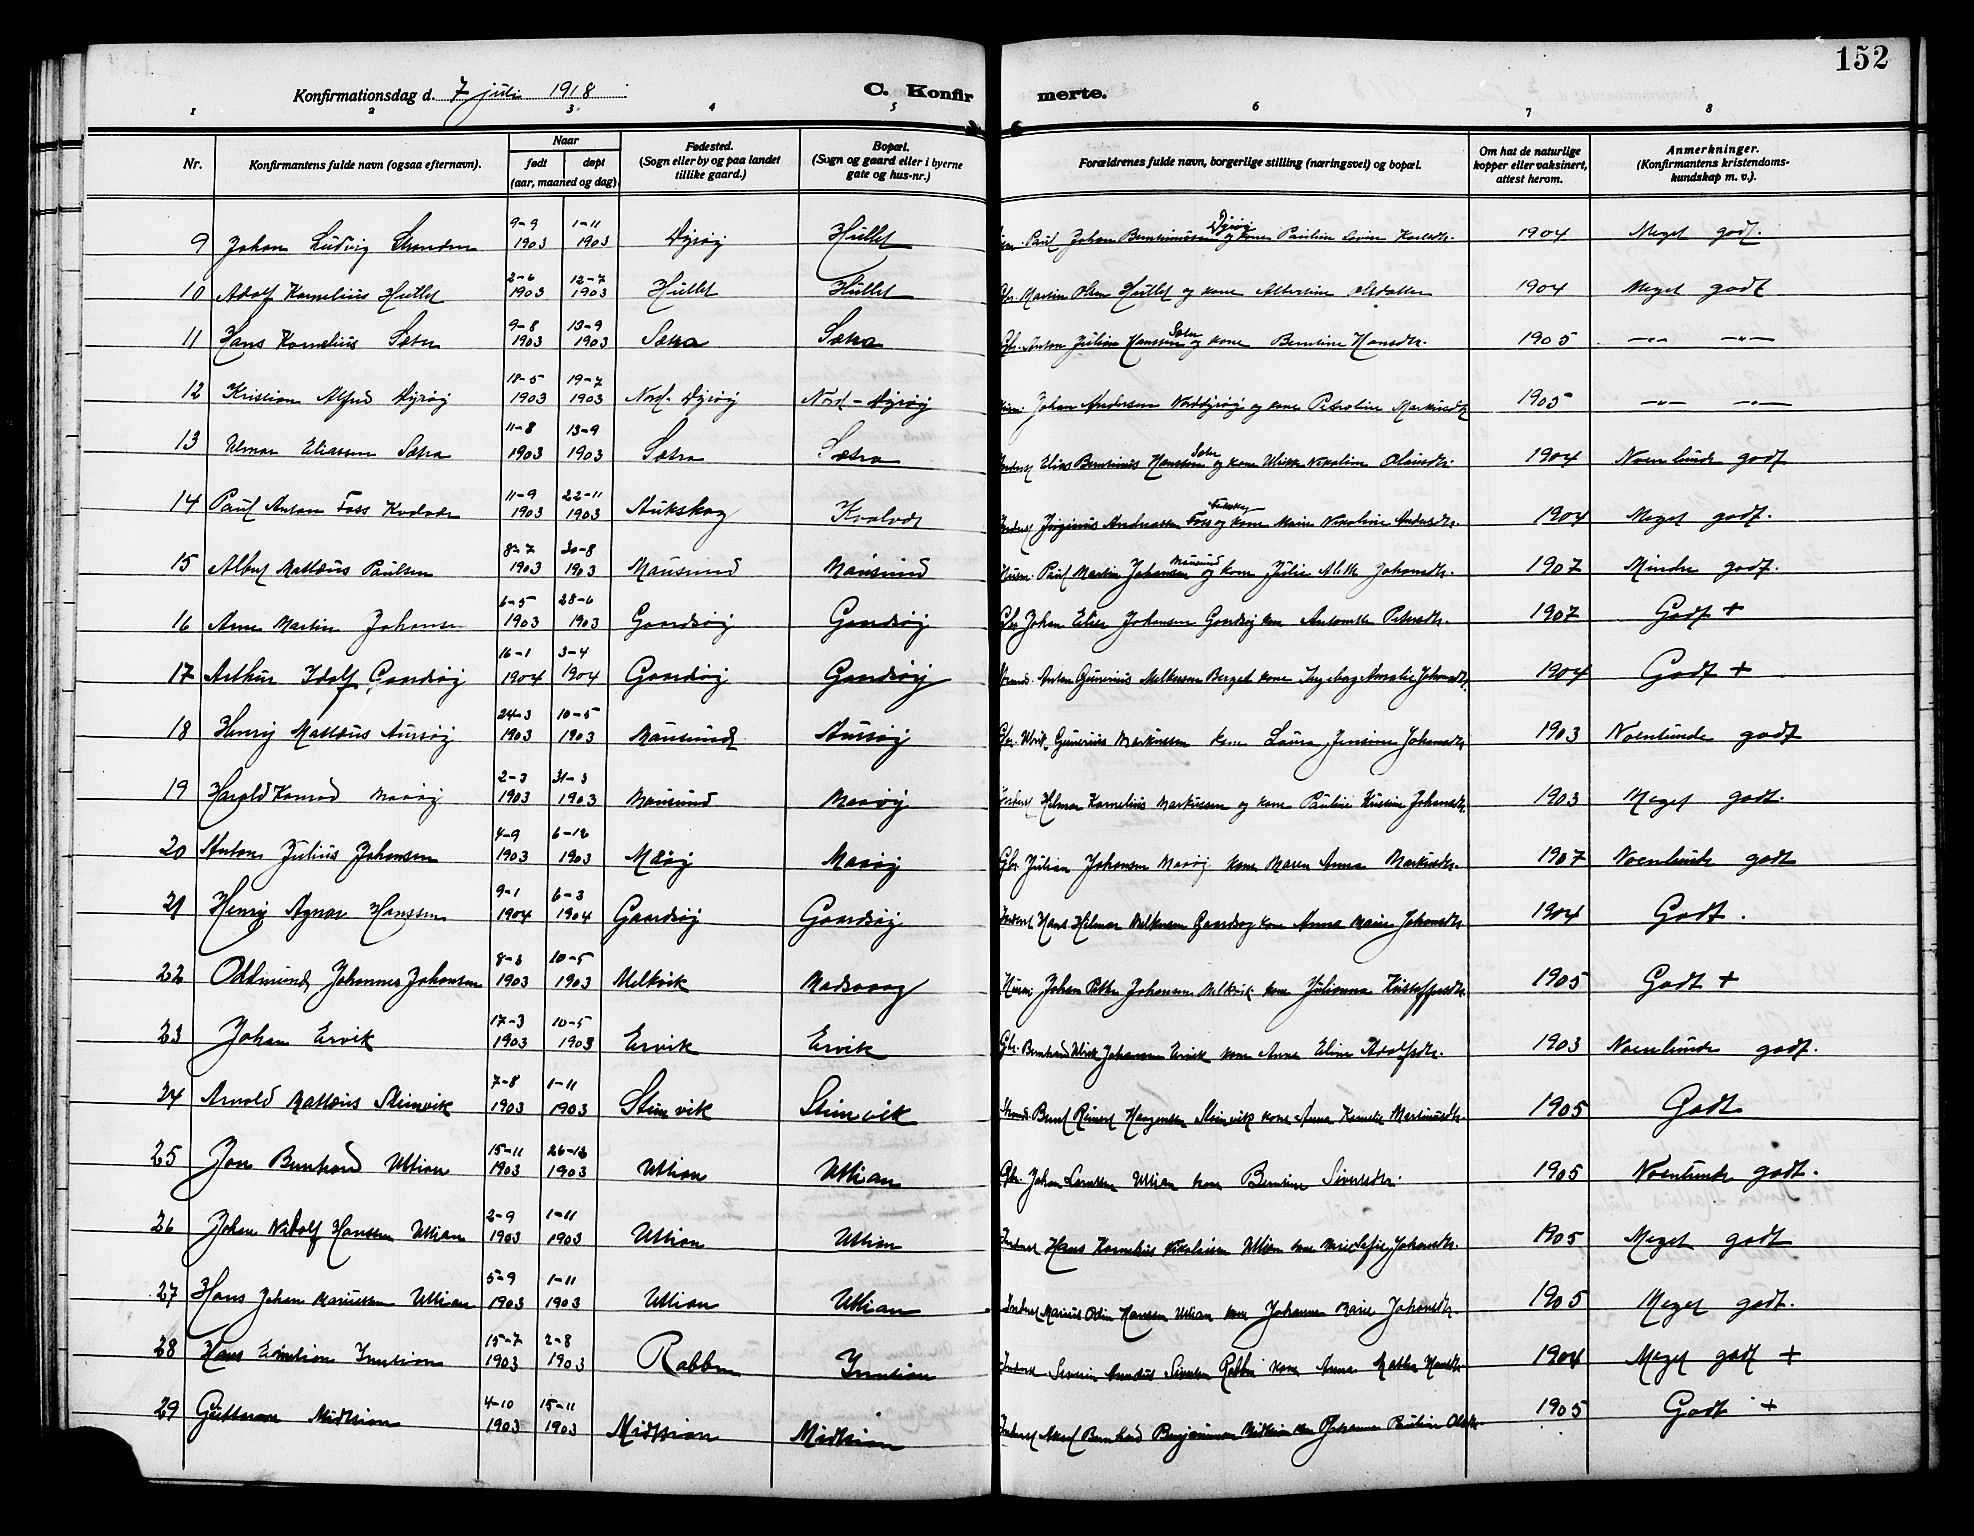 152
Konfirmationsdag d. 7 juli 1918
C. Konfirmerte.
1 2 3 4 5 6 7 8
Nr. Konfirmantens fulde navn (ogsaa efternavn). Naar født døpt (aar, maaned og dag) Fødested. (Sogn eller by og paa landet tillike gaard.) Bopæl. (Sogn og gaard eller i byerne gate og hus-nr.) Forældrenes fulde navn, borgerlige stilling (næringsvei) og bopæl. Om hat de naturlige kopper eller vaksinert, attest herom. Anmerkninger. (Konfirmantens kristendomskundskap m. v.).
9 Johan Ludvig 9-9 1903 1-11 1903 Dyrøy Hullet Paul Johan Berntinussen Dyrøy og kone Pauline 1904 Meget godt.
10 Adolf Kornelius Hullet 2-6 1903 12-7 1903 Hullet Hullet Gbr. Martin Olsen Hullet og kone Albertine 1904 Meget godt
11 Hans Kornelius Sæter 9-8 1903 13-9 1903 Sætra Sætra Gbr. Anton Julian Hanssen Sæter og kone Berntine Hansdtr. 1905 -"- -"-
12 Kristian Alfred Dyrøy 18-5 1903 19-7 1903 Nord-Dyrøy Nord-Dyrøy Johan Andersen Norddyrøy og kone Petroline Markusdtr 1905 -"- -"-
13 Ulmar Eliassen Sætra 11-8 1903 13-9 1903 Sætra Sætra Inderst Elias Berntinus Hanssen Sæter og kone Ulrikke Nikoline Olaisdtr. 1904 Noenlunde godt
14 Paul Antan Foss Kvalvær 11-9 1903 22-11 1903 Aukskag Kvalvær Inderst Jørginus Andreassen Foss og kone Marie Nikoline Andersdtr. 1904 Meget godt.
15 Albert Mattæus Paulsen 8-7 1903 30-8 1903 Mausund Mausund Husm. Paul Martin Johansen Mausund og kone Julie Johansdtr. 1907 Mindre godt.
16 Arne Martin Johansen 6-5 1903 28-6 1903 Gaardsøy Gaardsøy Gbr Johan Elias Johansen Gaardsøy kone Antonette Petersdtr. 1907 Godt +
17 Arthur Idolf Gaardsøy 16-1 1904 3-4 1904 Gaardsøy Gaardsøy Strands. Anton Gunerius Melkersen Berget kone Ingeborg Amalie Johansdtr 1904 Godt +
18 Henry Mattæus Aursøy 24-3 1903 10-5 1903 Mausund Aursøy Gbr. Ulrik Gunerius Markussen kone Laura Jensine Johansdtr 1903 Noenlunde godt
19 Harald Konrad Maaøy 2-3 1903 31-3 1903 Mausund Maaøy Inderst Helmer Kornelius Markussen og kone Pauline Kristine Johansdtr 1903 Meget godt.
20 Anton Julius Johansen 4-9 1903 6-12 1903 Maøy Maaøy Gbr Julian Johansen Maaøy kone Maren Anna Markusdtr. 1907 Noenlunde godt
21 Henry Agnar Hanssen 9-1 1904 6-3 1904 Gaardsøy Gaardsøy Inderst Hans Hilmar Melkersen Gaardsøy kone Anna Marie Johansdtr 1904 Godt.
22 Oddmund Johannes Johansen 8-3 1903 10-5 1903 Melkvik Madsvaag Husm. Johan Petter Johansen Melkvik kone Julianna Kristoffersdtr. 1905 Godt +
23 Johan Ervik 17-3 1903 10-5 1903 Ervik Ervik Gbr. Bernhard Ulrik Johansen Ervik kone Anna Eline Adolfsdtr. 1903 Noenlunde godt.
24 Arnold Mattæus Steinvik 7-8 1903 1-11 1903 Steinvik Steinvik Strands. Bernt Reinert Haagensen Steinvik kone Anna Kornelie Martinusdtr. 1905 Godt
25 Jon Bernhard Uttian 15-11 1903 26-12 1903 Uttian Uttian Gbr. Johan Uttian kone Berntine Sivertsdtr. 1905 Noenlunde godt.
26 Johan Nidolf Hanssen Uttian 2-9 1903 1-11 1903 Uttian Uttian Inderst Hans Kornelius Nikolaisen Uttian kone Johansdtr. 1905 Meget godt
27 Hans Johan Mariussen Uttian 5-9 1903 1-11 1903 Uttian Uttian Inderst Marius Odin Hanssen Uttian kone Johanna Marie Johansdtr. 1905 Meget godt.
28 Hans Emilian Inntian 15-7 1903 2-8 1903 Rabben Inntian Inderst Severin Amandus Sivertsen Rabben kone Anna Hansdtr. 1904 Meget godt +
29 Guttorm Midtsian 4-10 1903 15-11 1903 Midtsian Midtsian Inderst Bernhard Benjaminsen Midtsian kone Johanna Pauline 1905 Godt +